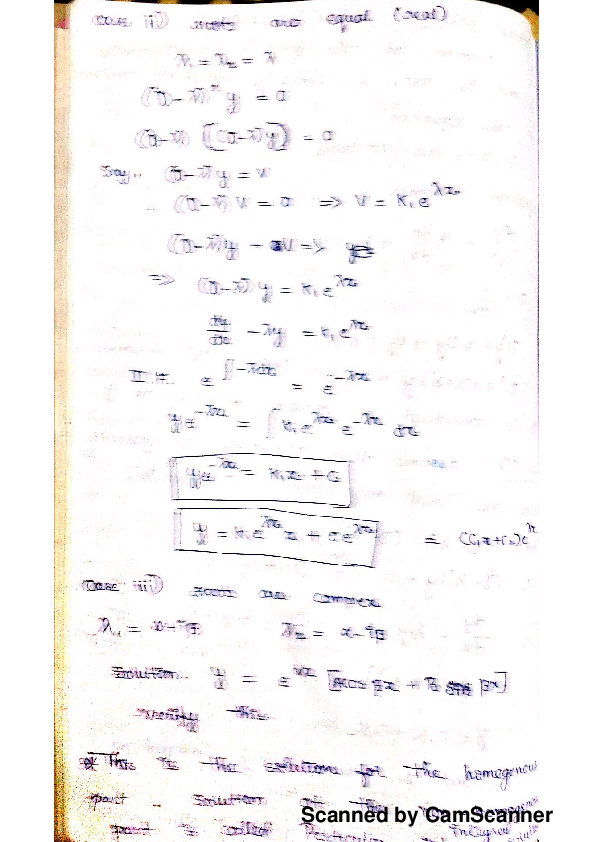 Case ii) roots are equal (real)
λ₁ = λ₂ = λ
(D-λ)² y = 0
(D-λ) [(D-λ)y] = 0
Say.. (D-λ) y = V
(D-λ) V = 0 => V = K₁ e^{λx}
(D-λ)y
=> (D-λ) y = K₁ e^{λx}
dy/dx - λy = K₁ e^{λx}
I.F. e^{∫-λdx} = e^{-λx}
y e^{-λx} = ∫ K₁ e^{λx} e^{-λx} dx
y e^{-λx} = K₁x + C
y = K₁ e^{λx} x + c e^{λx} = (C₁x + C₂) e^{λx}
Case iii) roots are complex
λ₁ = α+iβ λ₂ = α-iβ
Solution.. y = e^{αx} [A cos βx + B sin βx]
verify this
* This is the solution for the homogenous
part. Solution of the
part is called Particular Integral
Scanned by CamScanner